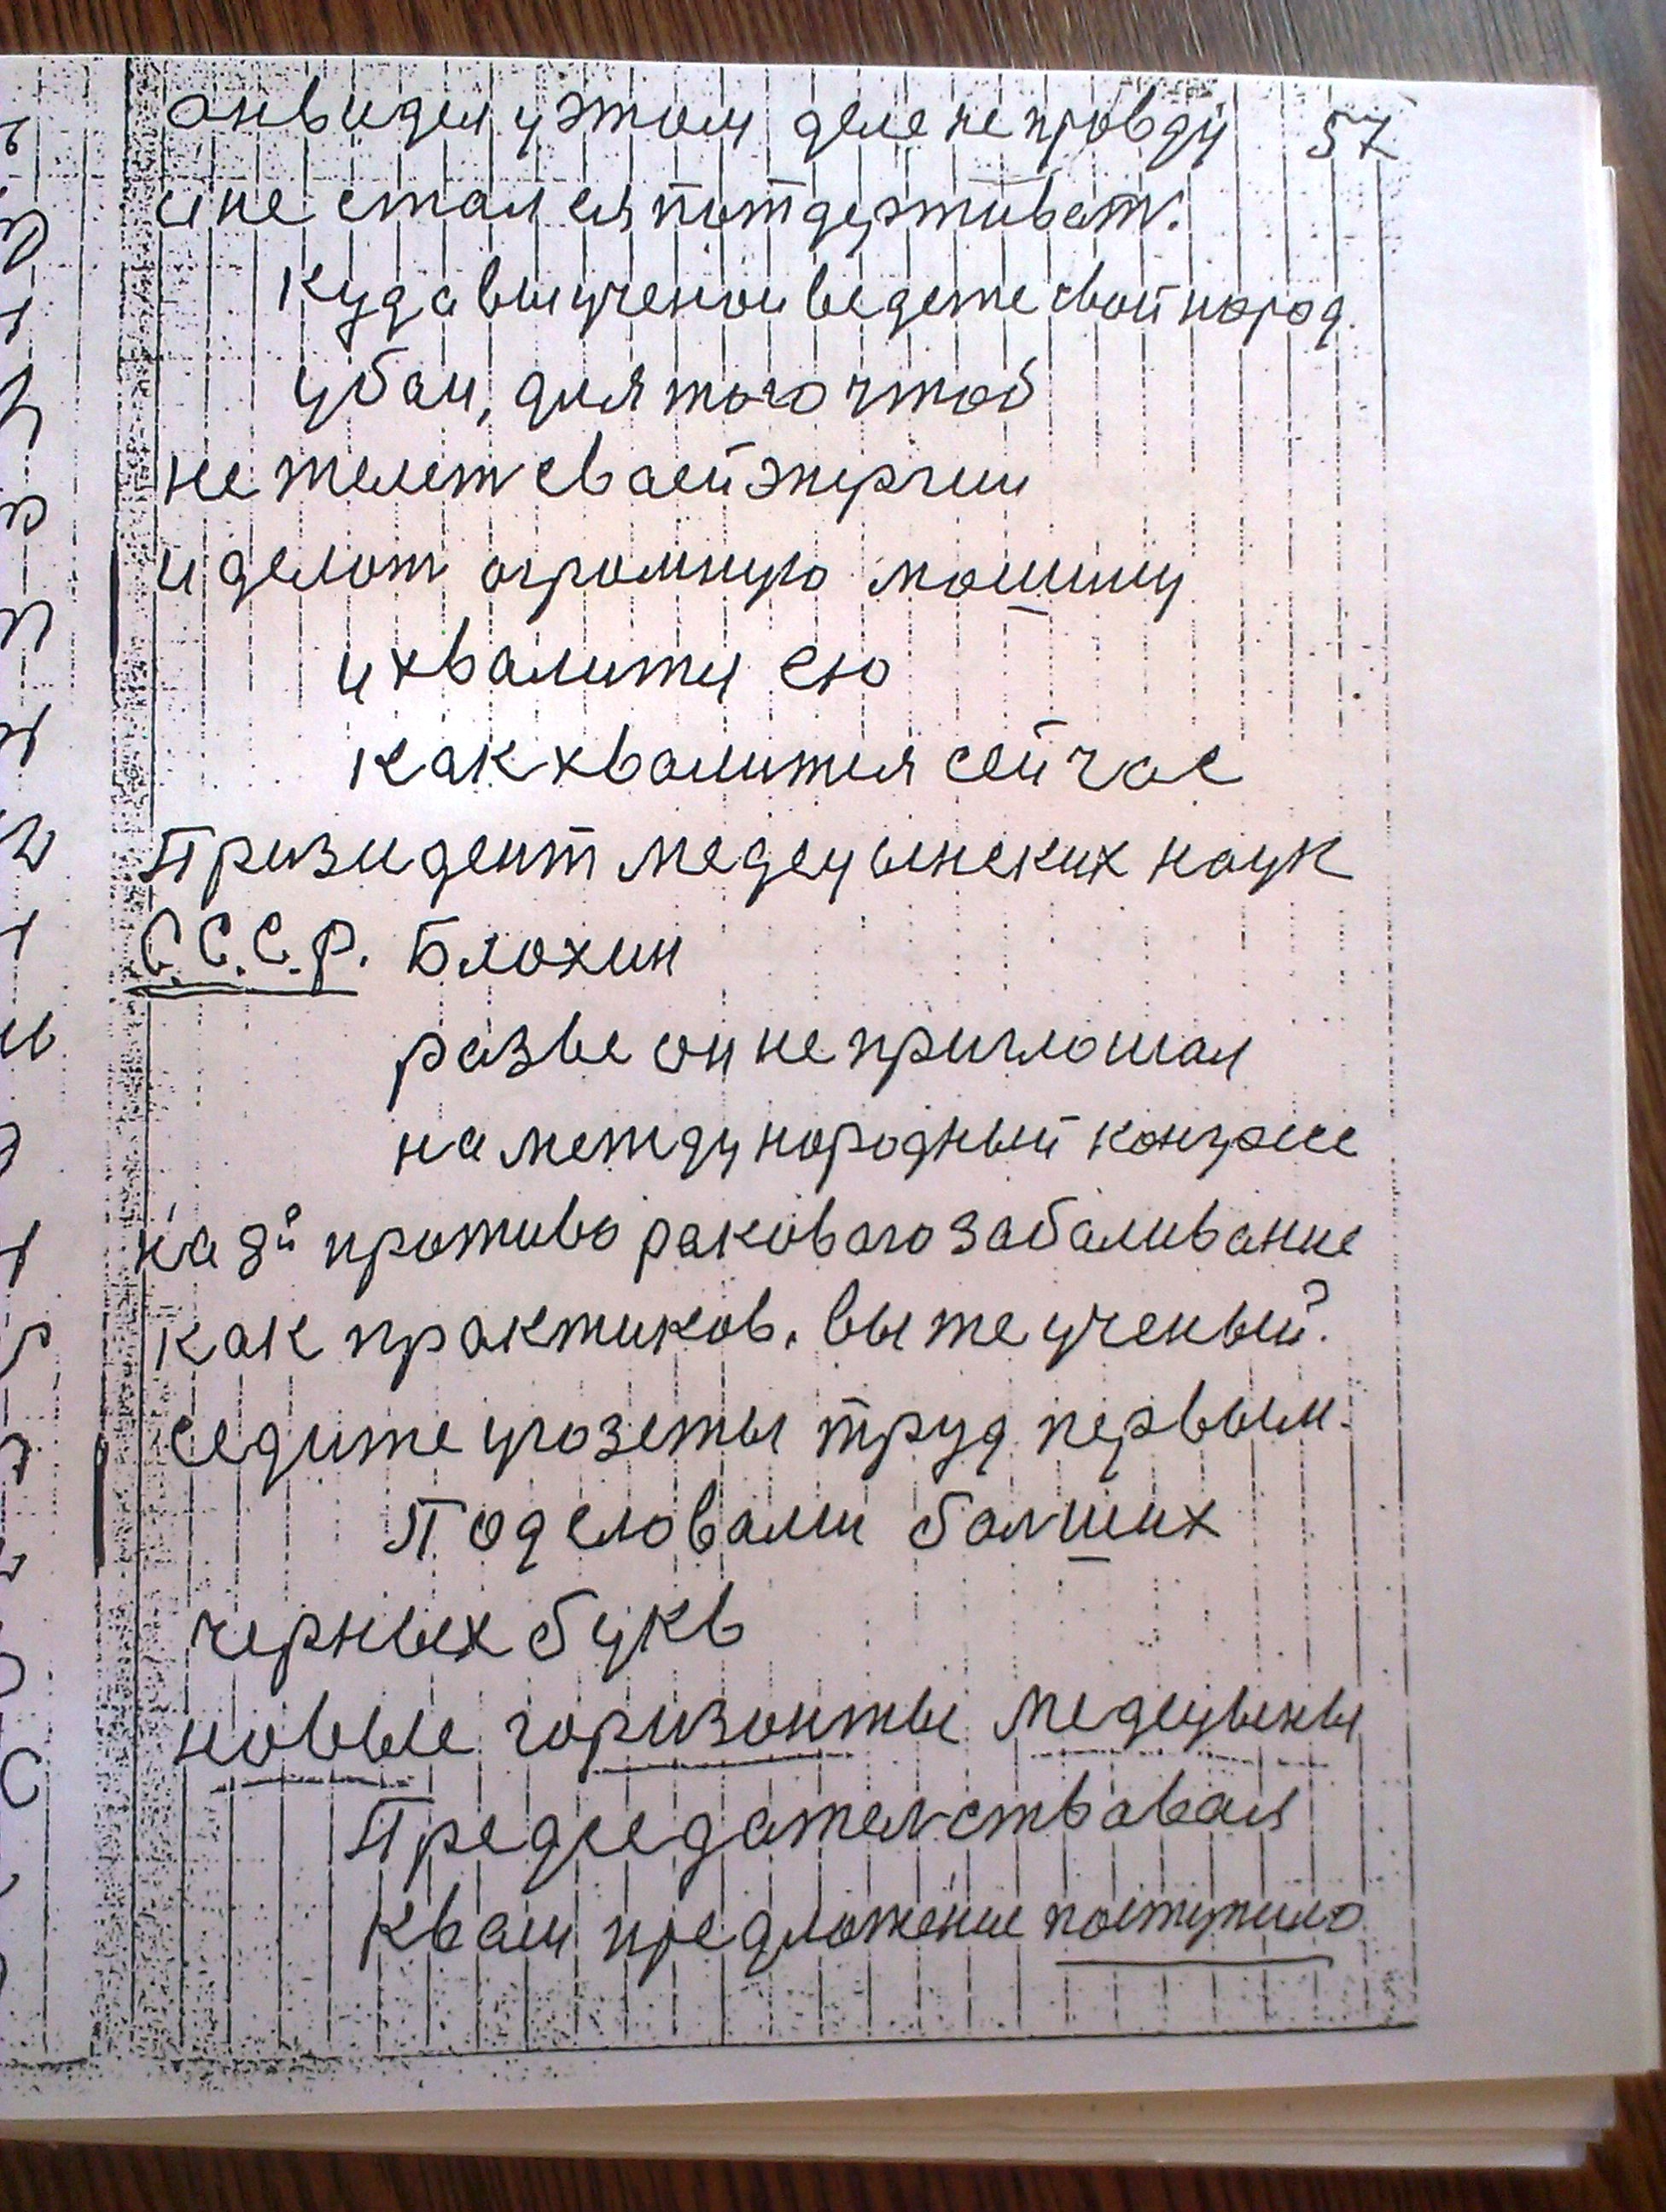 он видел у этом деле не провду 57
и не стался потдерживат.
Куда вы ученои ведете свой народ.
убаи, для того чтоб
не желет сваей энергии
и делот огромную мошину
и хвалитц ею
как хвалится сейчас
Призидент медецынских наук
С.С.С.Р. Блохин
разве он не приглошал
на междунородный конгресс
на 8й противо ракового забаливание
как практиков. вы же ученый?
седите у газеты труд первым.
Под словами балших
черных букв
новые горизонты медецыны
Председателствовася
К ваш предложение поступило